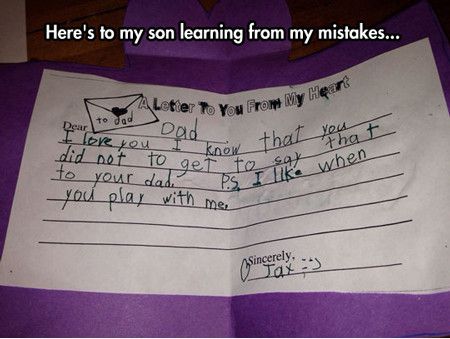 Here's to my son learning from my mistakes...
A Letter To You From My Heart
to dad
Dear Dad
I love you I know that you
did not to get to say that
to your dad. P.S. I like when
you play with me.
Sincerely,
Jax :-)